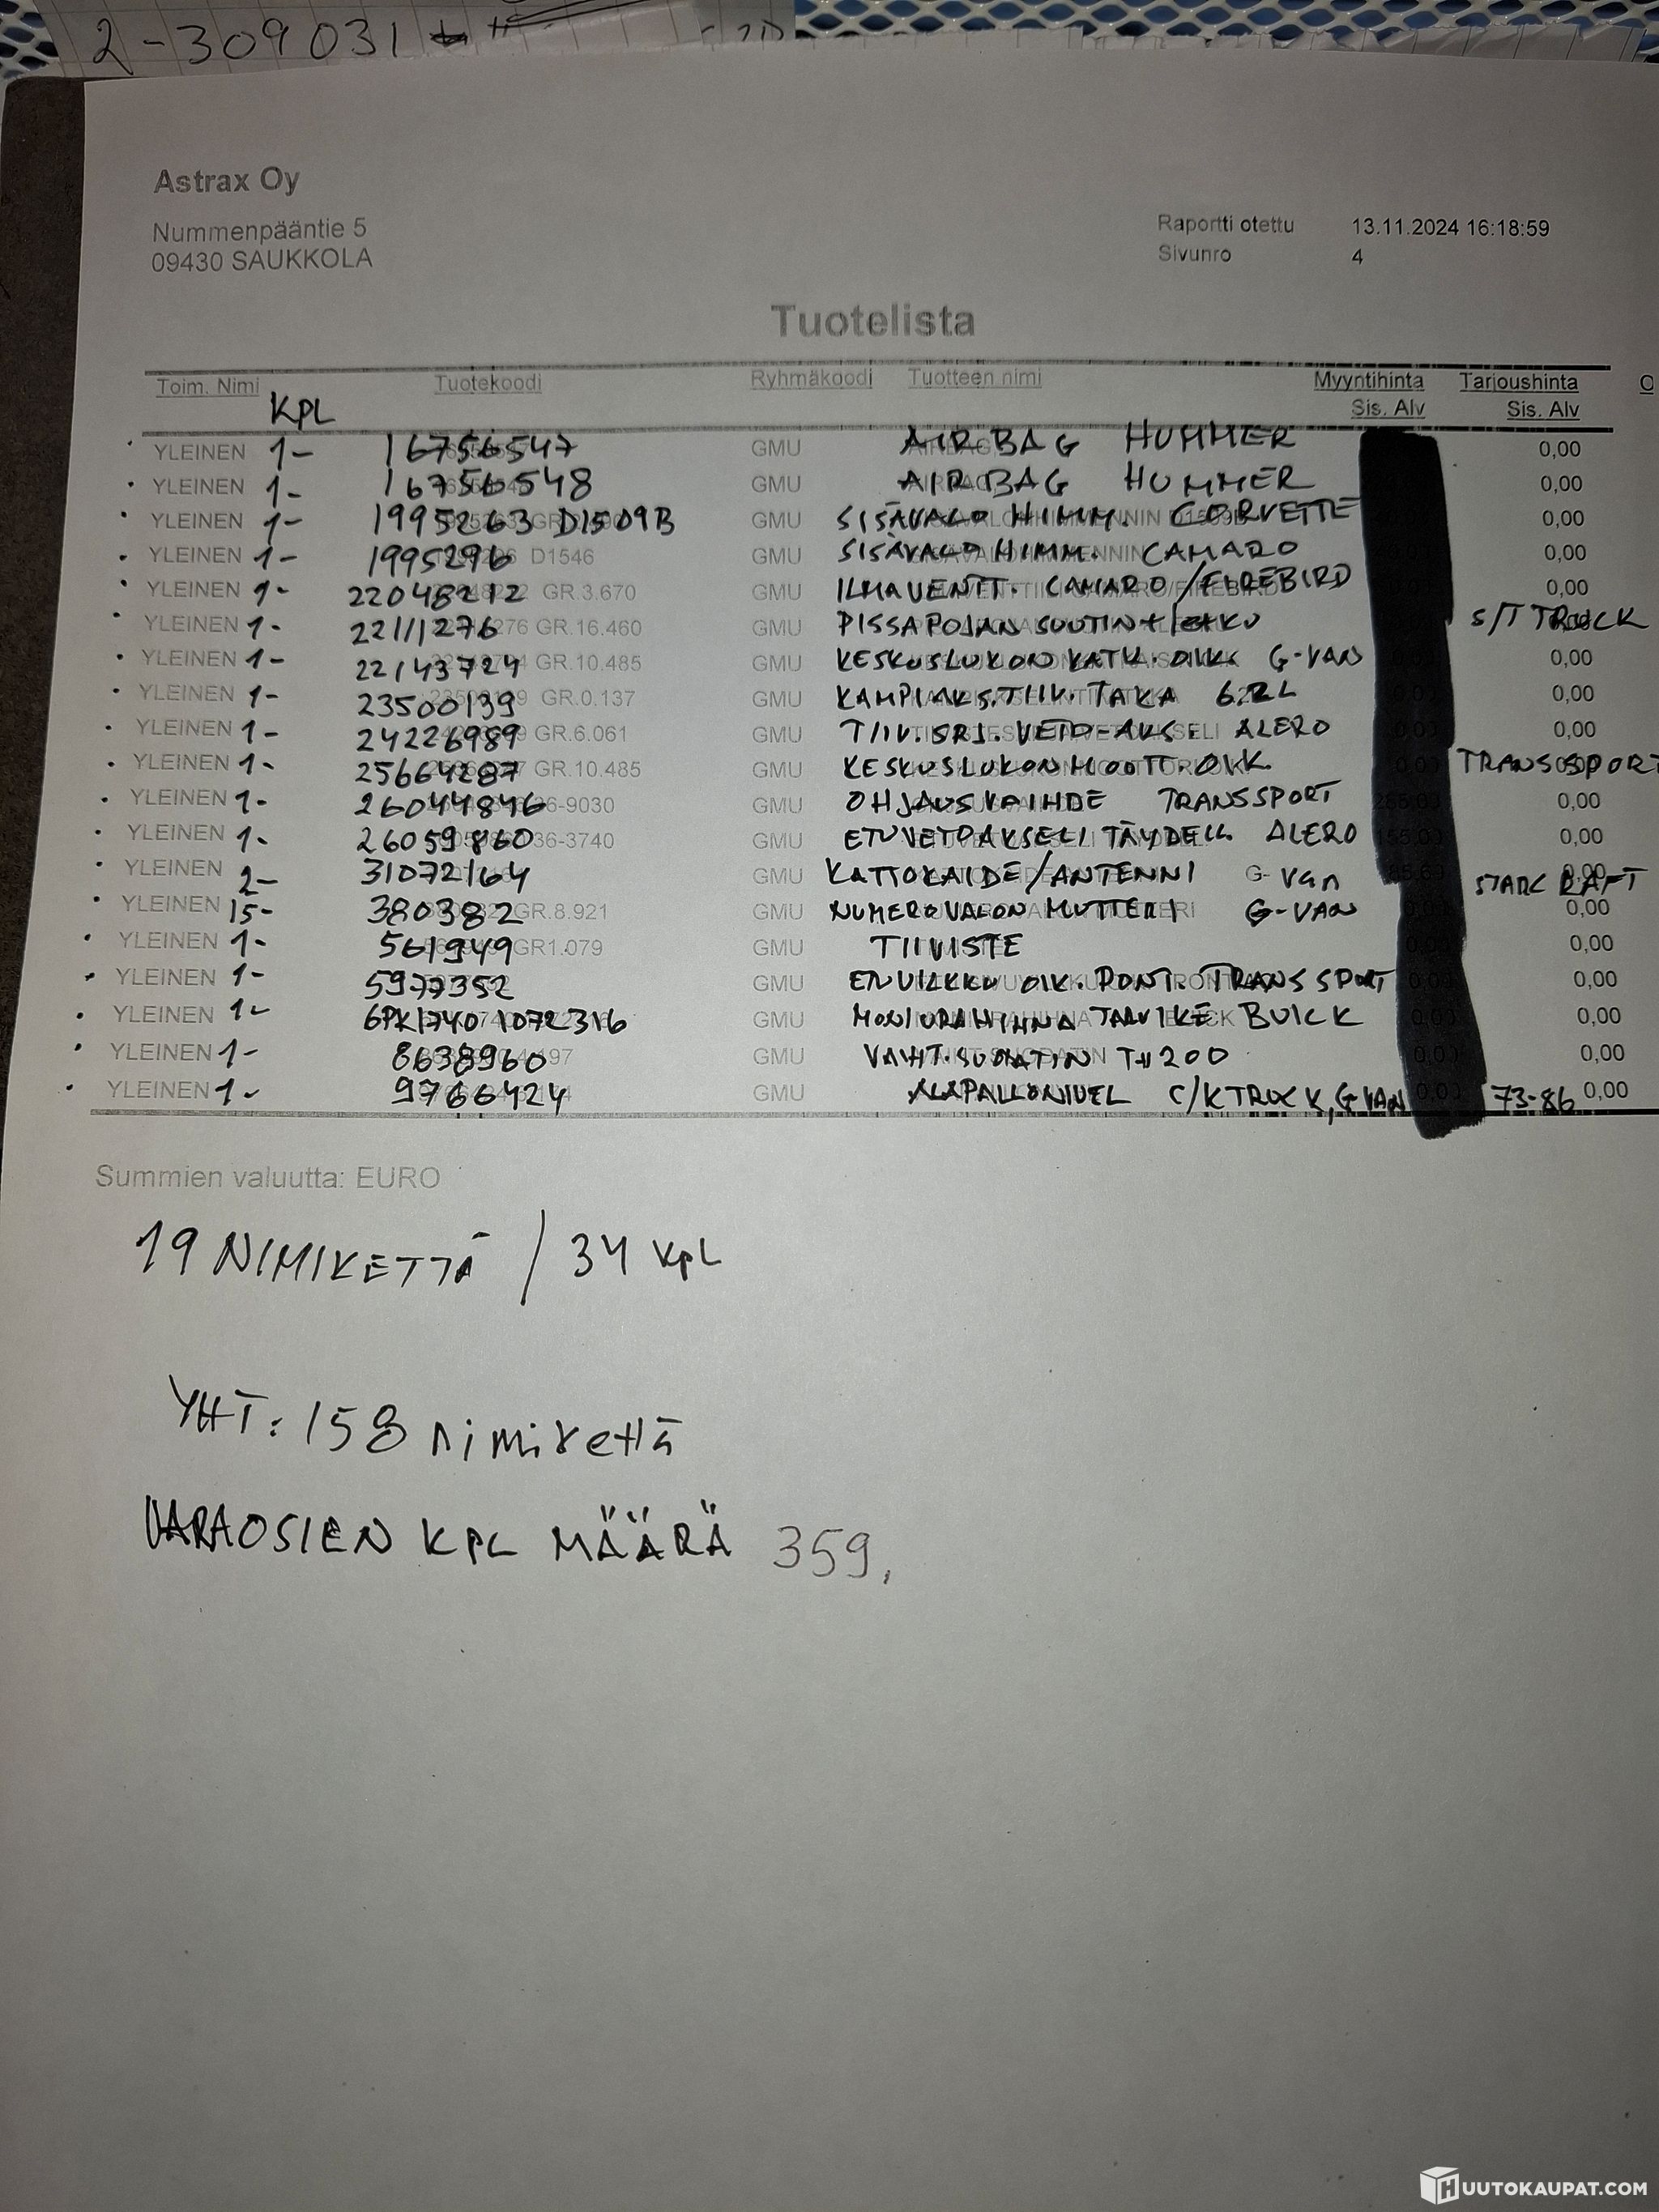 2-309031
Astrax Oy
Nummenpääntie 5
09430 SAUKKOLA
Raportti otettu 13.11.2024 16:18:59
Sivunro 4
Tuotelista
Toim. Nimi KPL Tuotekoodi Ryhmäkoodi Tuotteen nimi Myyntihinta Sis. Alv Tarjoushinta Sis. Alv O
YLEINEN 1- 16756547 GMU AIRBAG HUMMER 0,00
YLEINEN 1- 16756548 GMU AIRBAG HUMMER 0,00
YLEINEN 1- 1995263 D1509B GMU SISÄVALO HIMM. CORVETTE 0,00
YLEINEN 1- 1995296 D1546 GMU SISÄVALO HIMM. CAMARO 0,00
YLEINEN 1- 22048212 GR.3.670 GMU ILMAVENTT. CAMARO/FIREBIRD 0,00
YLEINEN 1- 22111276 GR.16.460 GMU PISSAPOJAN SUUTIN S/T TRUCK
YLEINEN 1- 22143724 GR.10.485 GMU KESKUSLUKON KATK. OIK. G-VAN 0,00
YLEINEN 1- 23500139 GR.0.137 GMU KAMPIAKS.TIIV. TAKA 6.2L 0,00
YLEINEN 1- 24226989 GR.6.061 GMU TIIV.SRJ. VETO-AKS. ALERO 0,00
YLEINEN 1- 25664287 GR.10.485 GMU KESKUSLUKON MOOTT. OIK. TRANSSPORT
YLEINEN 1- 26044846 36-9030 GMU OHJAUSVAIHDE TRANSSPORT 0,00
YLEINEN 1- 26059860 36-3740 GMU ETUVETOAKSELI TÄYDELL. ALERO 0,00
YLEINEN 2- 31072164 GMU KATTOKAIDE/ANTENNI G-Van STARCRAFT 0,00
YLEINEN 15- 380382 GR.8.921 GMU NUMEROVALON MUTTERI G-VAN 0,00
YLEINEN 1- 561949 GR1.079 GMU TIIVISTE 0,00
YLEINEN 1- 5977352 GMU ETUVILKKU OIK. PONT. TRANSSPORT 0,00
YLEINEN 1- 6PK1740 1072316 GMU MONIURAHIHNA TARVIKE BUICK 0,00
YLEINEN 1- 8638960 GMU VAIHT.SUODATIN TH200 0,00
YLEINEN 1- 9766424 GMU ALAPALLONIVEL C/K TRUCK, G-VAN 73-86 0,00
Summien valuutta: EURO
19 NIMIKETTÄ / 34 KPL
YHT: 158 nimikettä
VARAOSIEN KPL MÄÄRÄ 359,
HUUTOKAUPAT.COM